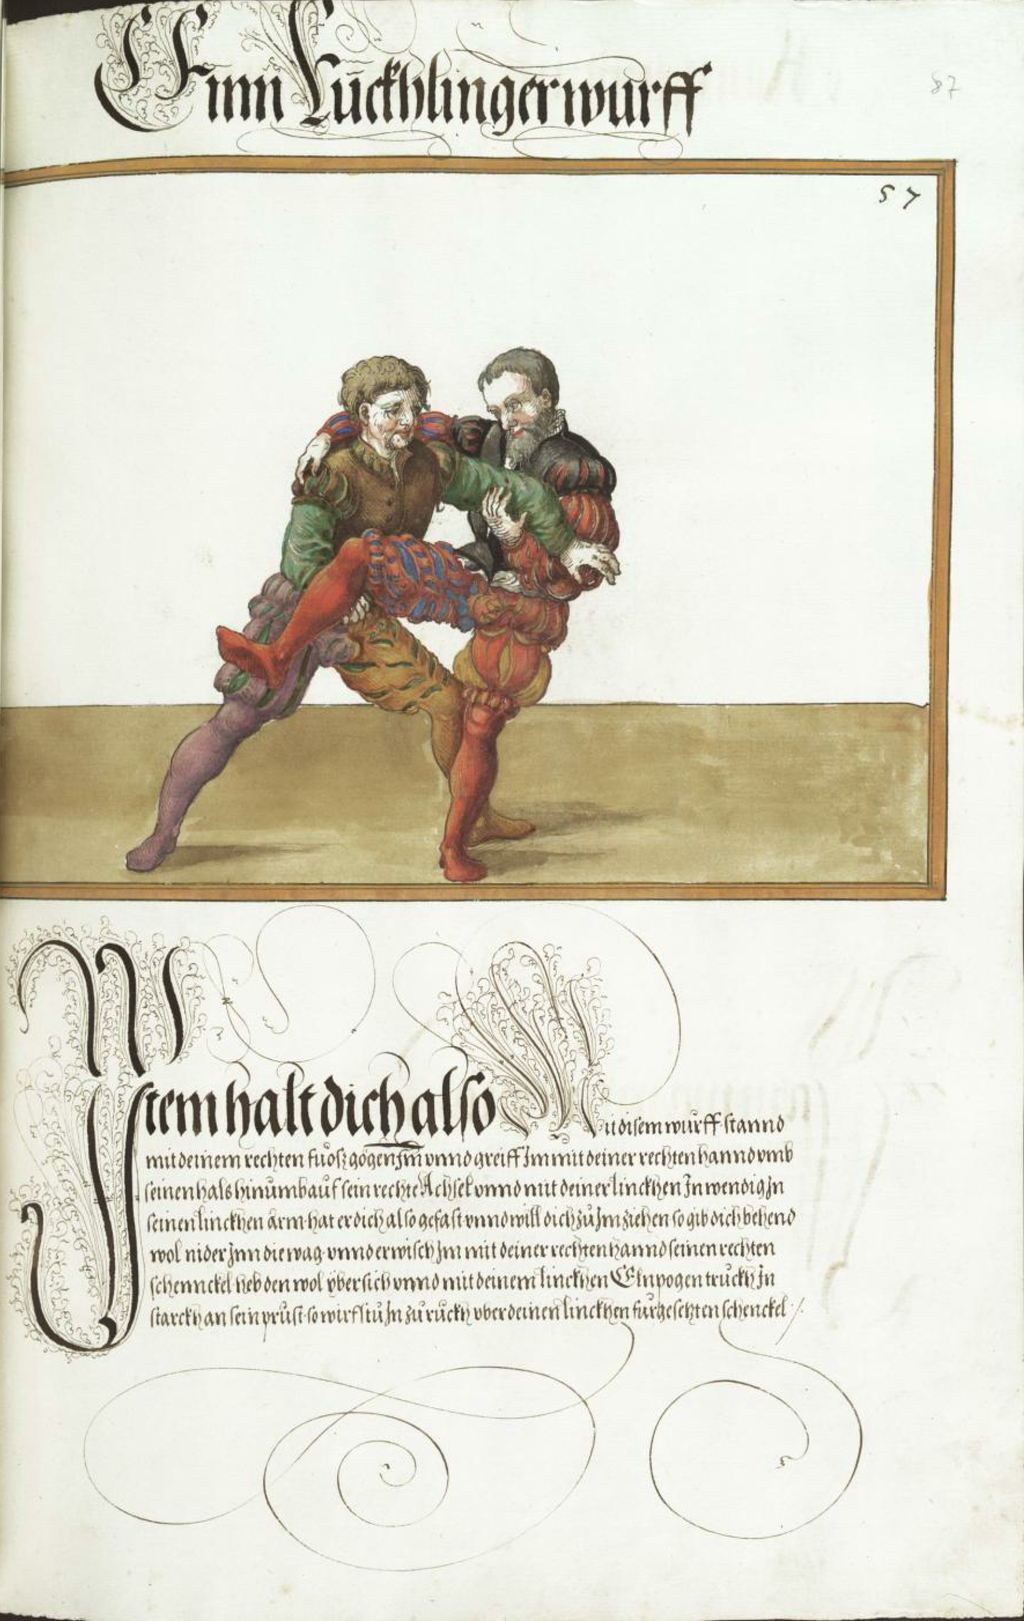 Ein Rückhlinger wurff
87
57
Item halt dich also Mit disem wurff stannd
mit deinem rechten fuosz gögen Jm vnnd greiff Jm mit deiner rechten hannd vmb
seinen hals hinumb auf sein rechte Achsel vnnd mit deiner linckhen Jnwendig Jn
seinen linckhen arm hat er dich also gefast vnnd will dich zu Jm ziehen so gib dich behend
wol nider Jnn die wag vnnd erwisch Jm mit deiner rechten hannd seinen rechten
schennckel heb den wol vbersich vnnd mit deinem linckhen Elnpogen truckh Jn
starckh an sein prust so wirfstu Jn zu ruckh vber deinen linckhen fürgesetzten schenckel